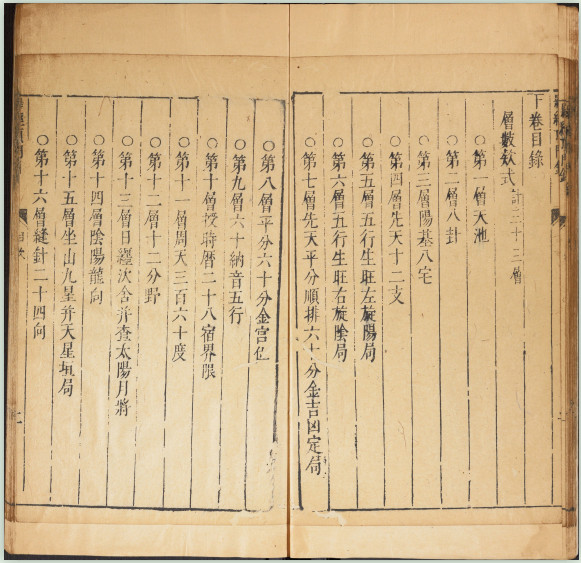 下卷目錄
層數欸式 計三十三層
○第一層天池
○第二層八卦
○第三層陽基八宅
○第四層先天十二支
○第五層五行生旺左旋陽局
○第六層五行生旺右旋陰局
○第七層先天平分順排六十分金吉凶定局
○第八層平分六十分金宫位
○第九層六十納音五行
○第十層授時曆二十八宿界限
○第十一層周天三百六十度
○第十二層十二分野
○第十三層日纏次舍并查太陽月將
○第十四層陰陽龍向
○第十五層坐山九星并天星垣局
○第十六層縫針二十四向
目次
二